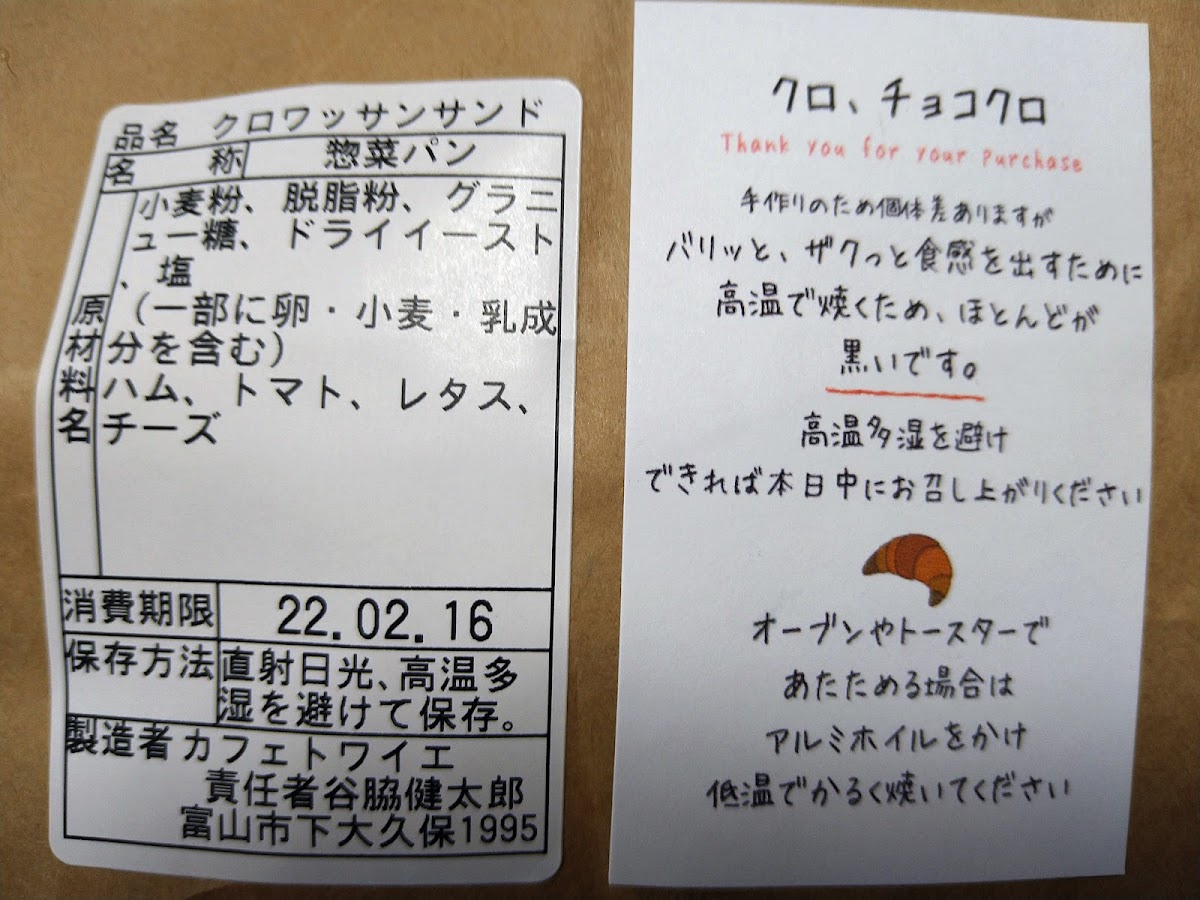 品名 クロワッサンサンド
名称 惣菜パン
原材料名
小麦粉、脱脂粉、グラニ
ュー糖、ドライイースト
、塩
（一部に卵・小麦・乳成
分を含む）
ハム、トマト、レタス、
チーズ
消費期限 22.02.16
保存方法 直射日光、高温多
湿を避けて保存。
製造者 カフェトワイエ
責任者谷脇健太郎
富山市下大久保1995
クロ、チョコクロ
Thank you for your purchase
手作りのため個体差ありますが
バリッと、ザクっと食感を出すために
高温で焼くため、ほとんどが
黒いです。
高温多湿を避け
できれば本日中にお召し上がりください
オーブンやトースターで
あたためる場合は
アルミホイルをかけ
低温でかるく焼いてください